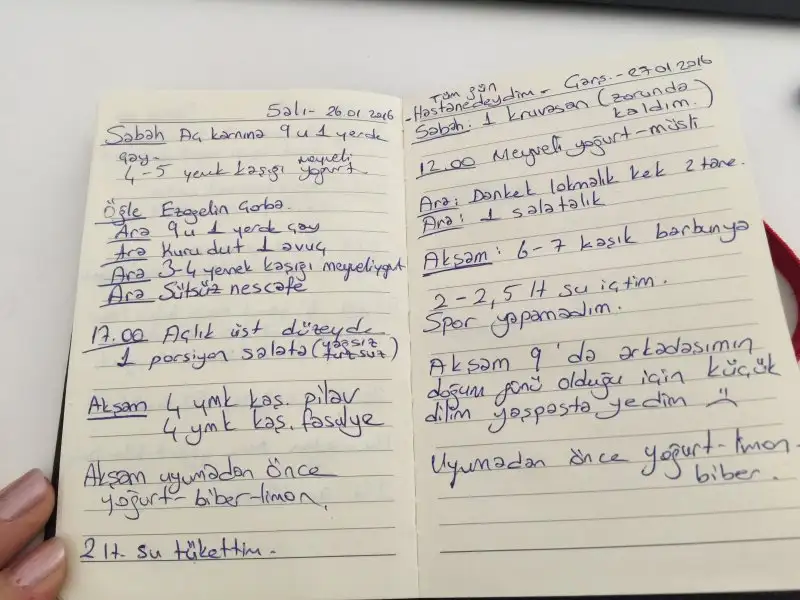 Salı - 26.01.2016
Sabah Aç karnına 9 u 1 yerde
çay -
4-5 yemek kaşığı meyveli yoğurt.
Öğle Ezogelin Çorba.
Ara 9 u 1 yerde çay
Ara Kuru dut 1 avuç
Ara 3-4 yemek kaşığı meyveliyogurt
Ara Sütsüz nescafe
17.00 Açlık üst düzeyde
1 porsiyon salata (yağsız tuzsuz)
Akşam 4 ymk kaş. pilav
4 ymk kaş. fasulye
Akşam uyumadan önce
yoğurt - biber - limon.
2 lt. su tükettim.
Tüm gün
Hastanedeydim - Çarş. - 27.01.2016
Sabah: 1 kruvasan (zorunda kaldım.)
12.00 Meyveli yoğurt - müsli
Ara: Dankek lokmalık kek 2 tane.
Ara: 1 salatalık
Akşam: 6-7 kaşık barbunya
2 - 2,5 lt su içtim.
Spor yapamadım.
Akşam 9'da arkadaşımın
doğum günü olduğu için küçük
dilim yaşpasta yedim :(
Uyumadan önce yoğurt - limon -
biber.